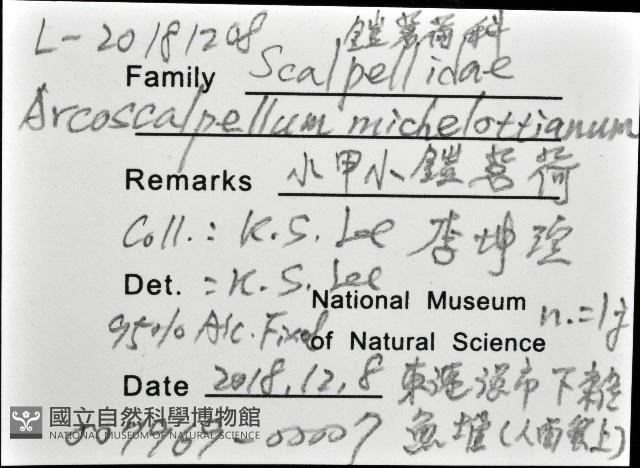 L-20181208 鎧茗荷科
Family Scalpellidae
Arcoscalpellum michelottianum
Remarks 小甲小鎧茗荷
Coll.: K.S. Lee 李坤瑄
Det. : K.S. Lee
National Museum n.=1
95% Alc. Fixed of Natural Science
Date 2018.12.8 東港漁市下雜
魚堆(人面蟹上)
國立自然科學博物館
NATIONAL MUSEUM OF NATURAL SCIENCE
-00007